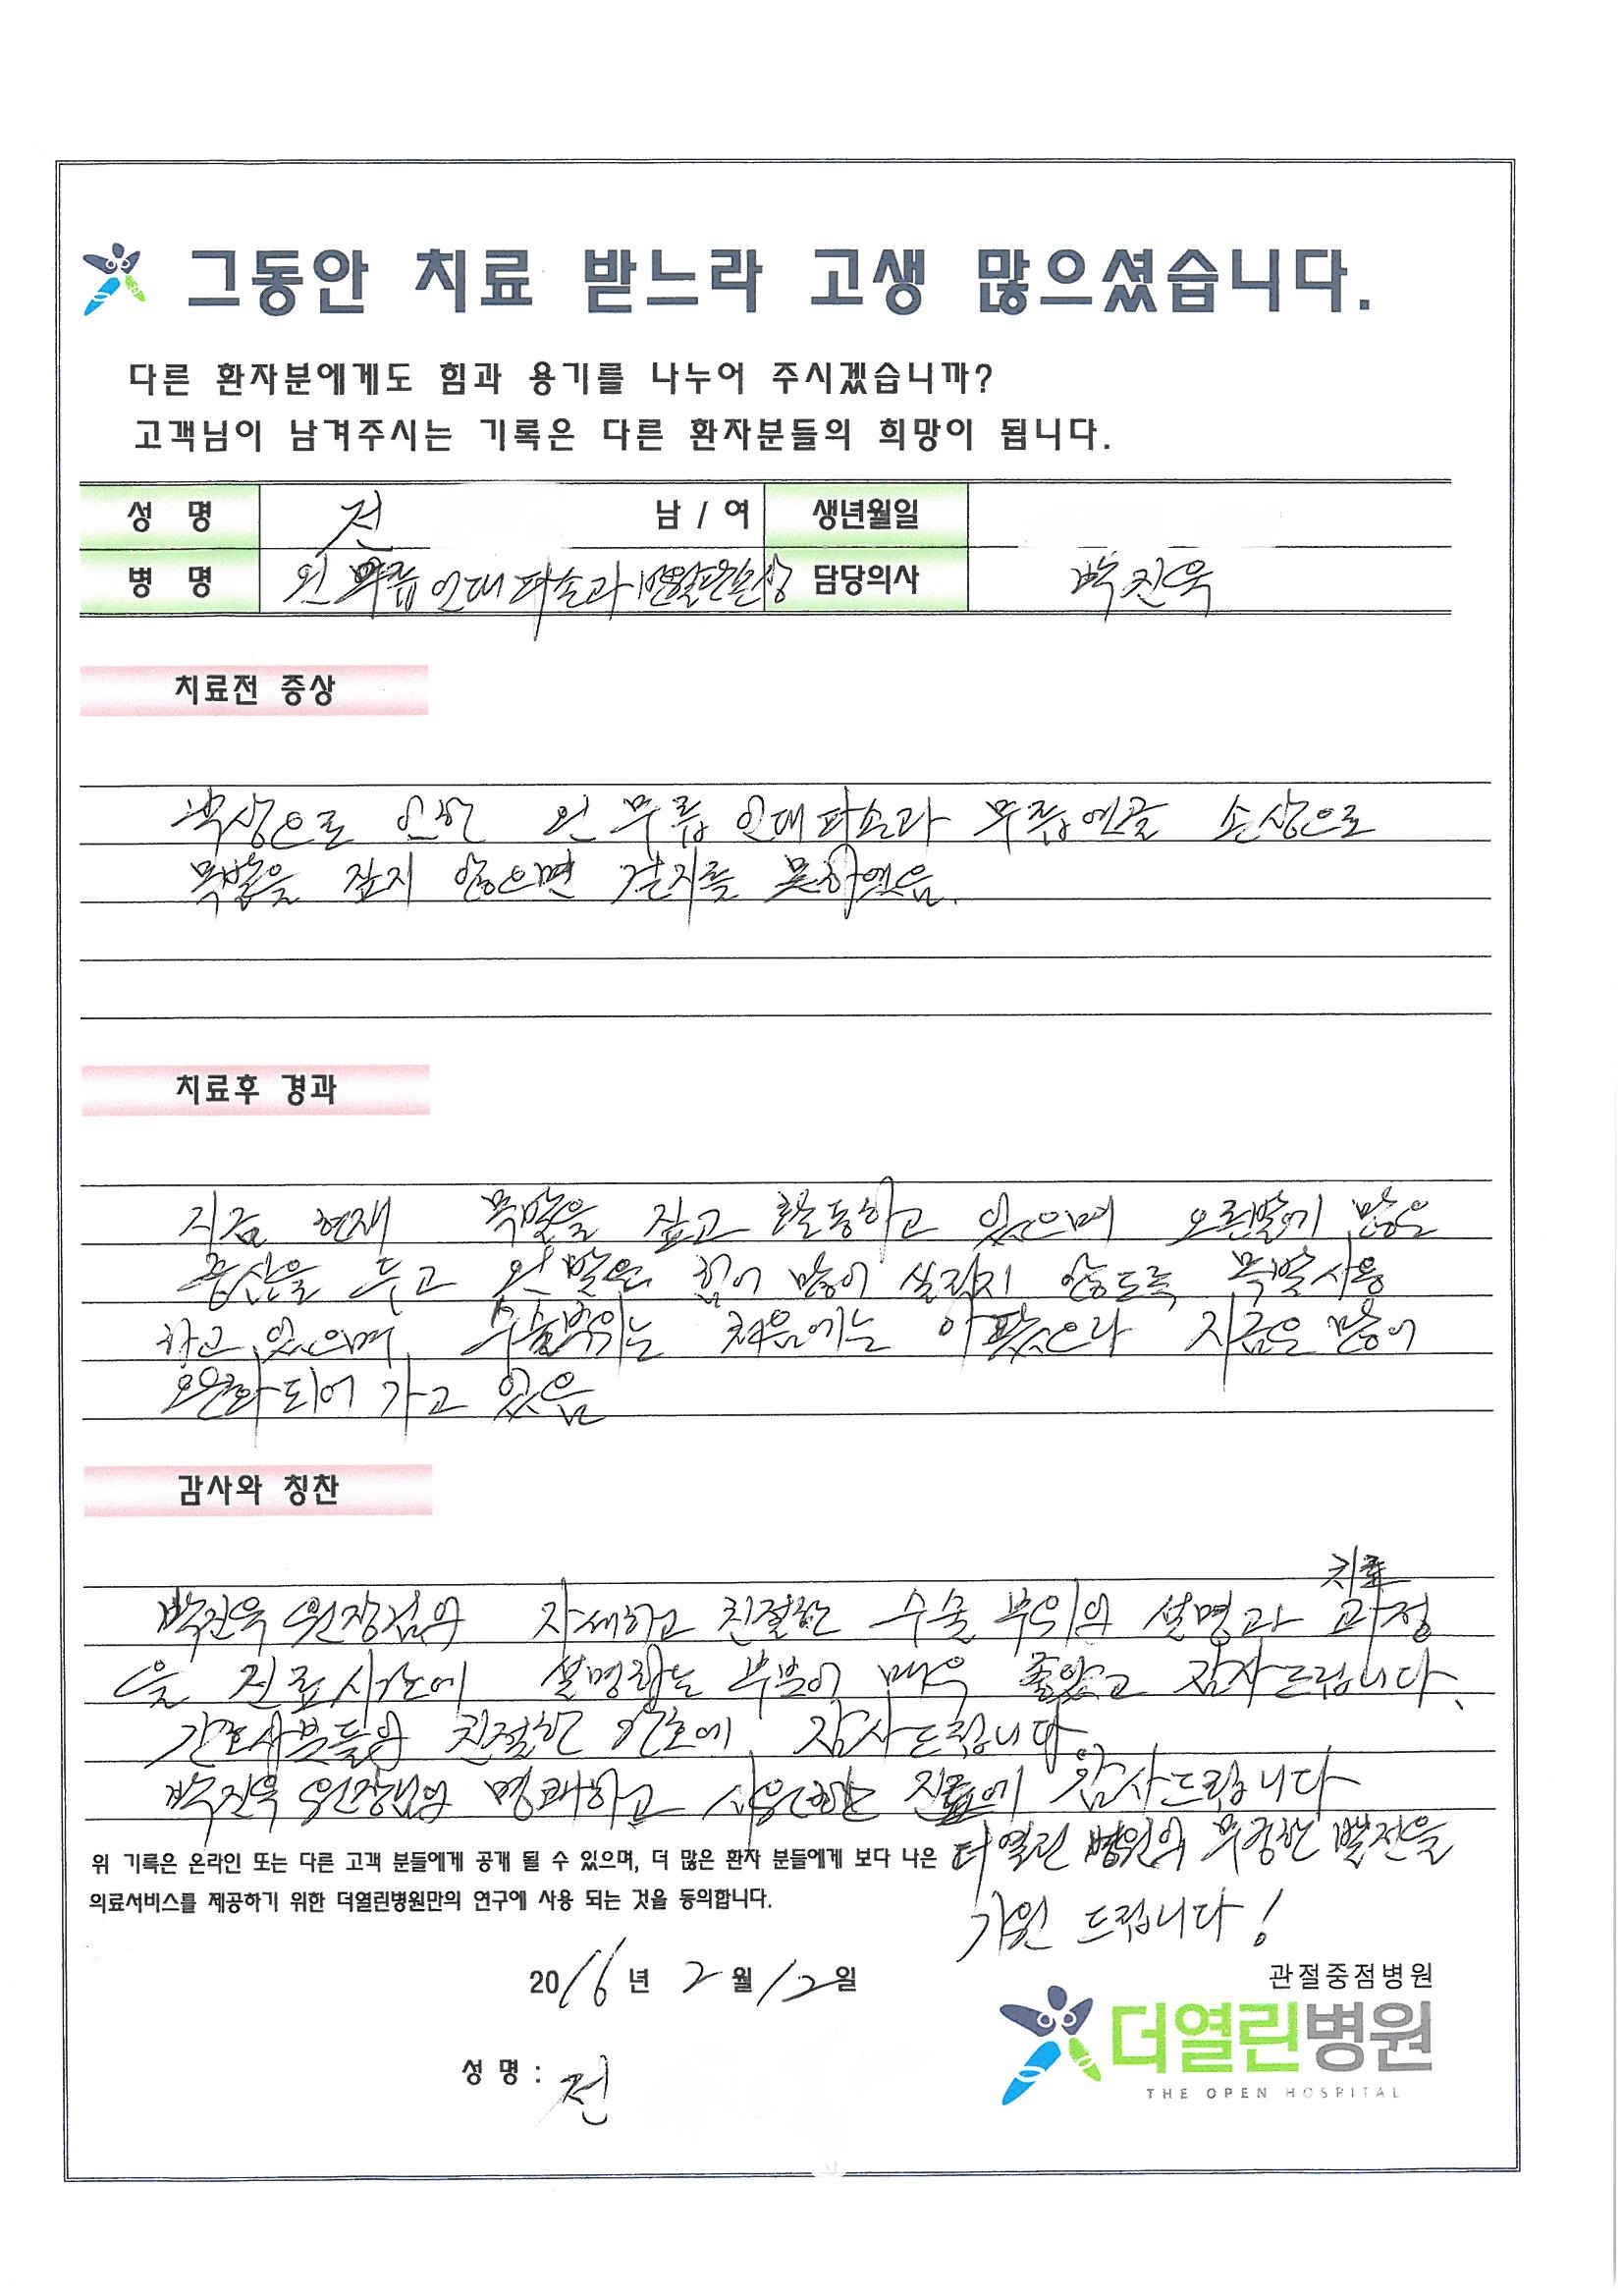 그동안 치료 받느라 고생 많으셨습니다.
다른 환자분에게도 힘과 용기를 나누어 주시겠습니까?
고객님이 남겨주시는 기록은 다른 환자분들의 희망이 됩니다.
성 명 전 남 / 여 생년월일
병 명 왼 무릅 인대 파손과 반월판손상 담당의사 박진욱
치료전 증상
낙상으로 인한 왼 무릅 인대파손과 무릅연골 손상으로
목발을 짚지 않으면 걷지를 못하였음.
치료후 경과
지금 현재 목발을 짚고 활동하고 있으며 오른발에 많은
중심을 두고 왼발은 힘이 많이 실리지 않도록 목발사용
하고 있으며, 수술부위는 처음에는 아팠으나 지금은 많이
완화되어 가고 있음
감사와 칭찬
치료
박진욱 원장님의 자세하고 친절한 수술 부위의 설명과 과정
을 진료시간에 설명하는 부분이 매우 좋았고 감사드립니다.
간호사분들의 친절한 간호에 감사드립니다.
박진욱 원장님의 명쾌하고 시원한 진료에 감사드립니다
더열린 병원의 무궁한 발전을
위 기록은 온라인 또는 다른 고객 분들에게 공개 될 수 있으며, 더 많은 환자 분들에게 보다 나은
의료서비스를 제공하기 위한 더열린병원만의 연구에 사용 되는 것을 동의합니다.
기원 드립니다!
2016년 2월 12일
관절중점병원
더열린병원
THE OPEN HOSPITAL
성 명 : 전